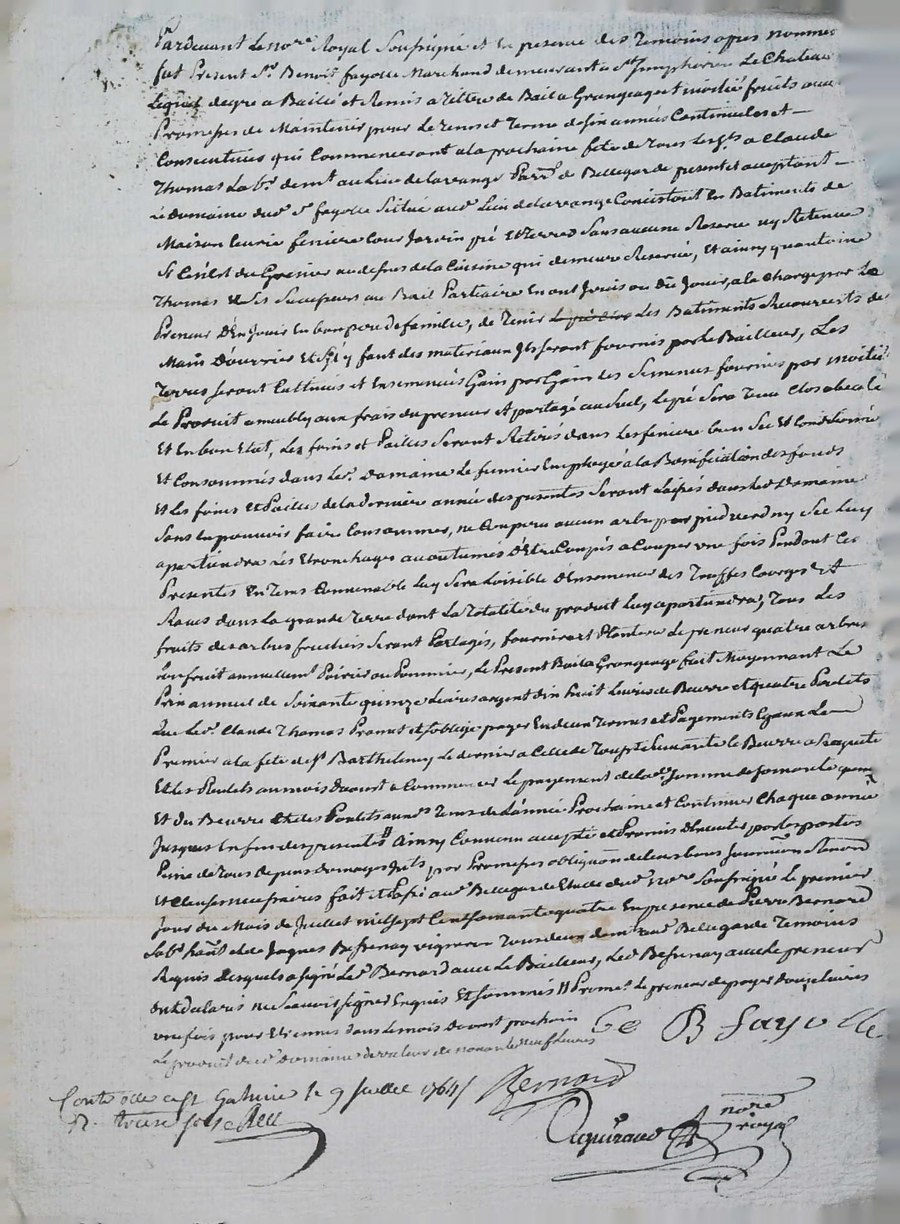 Pardevant Le no.re Royal Soussigné et en presence des Temoins apres nommes
fut Present S.r Benoit fayolle Marchand demeurant a S.t Simphorien Le Chateau
Lequel de gré a Baillé et Remis a tittre de Bail a Grangeage et moitié fruits avec
Promesses de Maintenir pour Le tems et Terme de six années Continuelles et
Consecutives qui Commenceront a la prochaine fete de tous les Sts a Claude
Thomas Lab.r dem.t au Lieu de Lavrange Parr.e de Bellegarde present et acceptant
Le domaine dud. S.r fayolle Scittué aud. Lieu de Lavrange Concistant En Batiments de
Maison Ecurie feniere Cour Jardin pré Et terres Sans aucune Reserve ny Retenue
Si Ce n'est du Grenier au dessus de la Cuisine qui demeure Reservé, Et ainsy qu'antoine
Thomas Et Ses Successeurs au Bail Partiaire En ont Jouis ou dû Jouir, a la Charge par Le
Preneur D'En Jouir En bon pere de famille, de Tenir Les Batiments Recouverts de
Main D'ouvrier Et S'il y faut des materiaux Ils Seront fournis par Le Bailleur, Les
Terres Seront Cultivées et Ensemencés Gain par Gain Les Semences fournies par moitié
Le Produit ameubly aux frais du preneur Et partagé au Sueil, Le pré Sera Tenu Clos
Et En bon Etat, Les foins et Pailles Seront Retirés dans Les feniere bien Sec Et Conditionné
Et Consommés dans Led. Domaine Le fumier Employé a la Bonification des fonds
Et Les foins et Pailles de la derniere année des presentes Seront Laissés dans Led. Domaine
Sans En pouvoir faire Consommer, ne Coupera aucun arbre par pied verd ny Sec Luy
apartiendra Les Etronchages accoutumés D'Etre Coupés a Couper une fois Pendant Les
Presentes En Tems Convenable Luy Sera Loisible D'Ensemencer des Truffes Courges Et
Raves dans La grande Terre dont La Totalité du produit Luy apartiendra, Tous Les
fruits des arbres fruitiers Seront Partagés, fournira et Plantera Le preneur quatre arbres
a fruit annuellem.t Poirier ou Pommier, Le Present Bail a Grangeage fait Moyennant Le
Prix annuel de Soixante quinze Livres argent dix huit Livres de Beurre et quatre Poulets
que Led. Claude Thomas Promet et s'oblige payer En deux Termes et Payements Egaux Le
Premier a la fete de S.t Barthelemy Le dernier a Celle de Suivante Le Beurre a Requete
Et Les Poulets au mois d'aoust a Commencer Le payement de lad. Somme de Soixante quinze
Et du Beurre Et des Poulets aux d. Tems de L'année Prochaine et Continuer Chaque année
Jusques En fin des presentes Ainsy Convenu accepté et Promis Observer par Les parties
Peine de Tous depens domages Ints par Promesses obligâon de Leurs biens Soumissions Renonc
Et Clauses necessaires fait Et Passé aud. Bellegarde Etude dud. no.re Soussigné Le premier
Jour du Mois de Juillet mil Sept Cent Soixante quatre En presence de Pierre Bernard
Sab.r hab.t et de Jaques Bessenay vigneron Tous deux dem.t aud. Bellegarde Temoins
Requis Desquels a signé Led. Bernard avec Le Bailleur, Led. Bessenay avec Le preneur
ont declaré ne Scavoir signer Enquis Et Sommés Promet Le preneur de payer douze Livres
une fois pour Etrennes dans Le mois d'aoust prochain
Le produit du d. Domaine de valeur de nonante neuf Livres
B fayolle
Controllé a S.t Galmier le 9 Juillet 1764
R. treize sols
Bernard
no.re royal